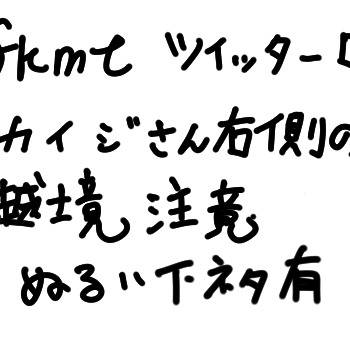 fkmt ツイッターロ
カイジさん右側の
越境注意
ぬるい下ネタ有